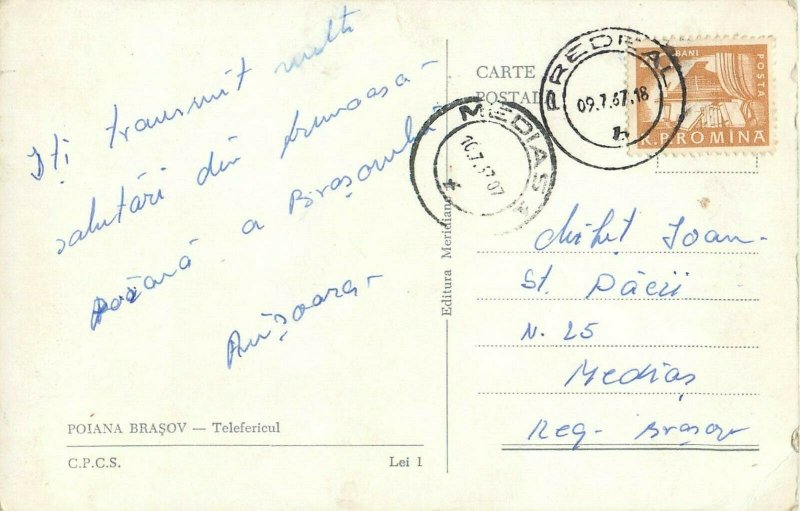 Iți transmit multe
salutări din frumoasa
poiană a Brașovului
CARTE
POSTALĂ
PREDEAL
09.7.67.18
MEDIAS
10.7.67.07
BANI
POSTA
R.P.ROMINA
Editura Meridiane
Ioan
St. Dăcii
N. 25
Mediaș
Reg. Brașov
POIANA BRAȘOV — Telefericul
C.P.C.S.
Lei 1